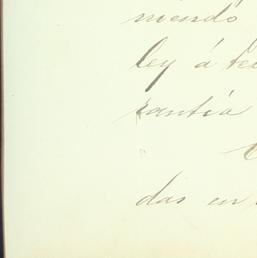 niendo
ley á
rantía
das en